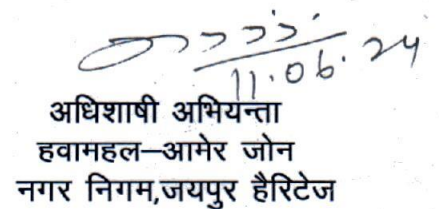 11.06.24
अधिशाषी अभियन्ता
हवामहल–आमेर जोन
नगर निगम,जयपुर हैरिटेज